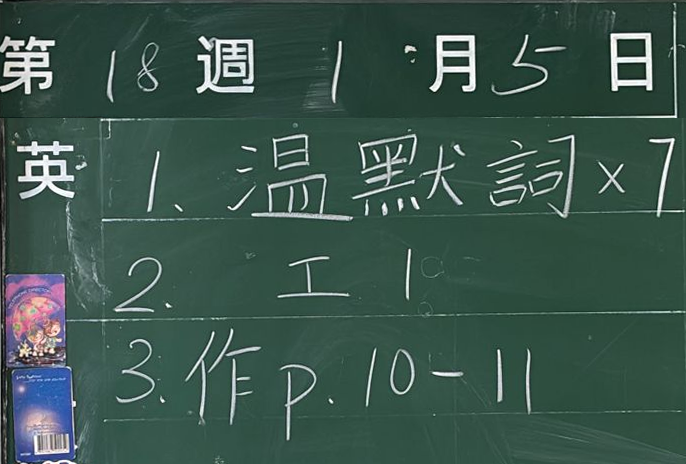 第 18 週 1 月 5 日
英 1、溫默詞×7
2、 工 1
3.作p.10-11